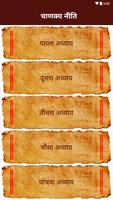 चाणक्य नीति
पहला अध्याय
दूसरा अध्याय
तीसरा अध्याय
चौथा अध्याय
पांचवा अध्याय